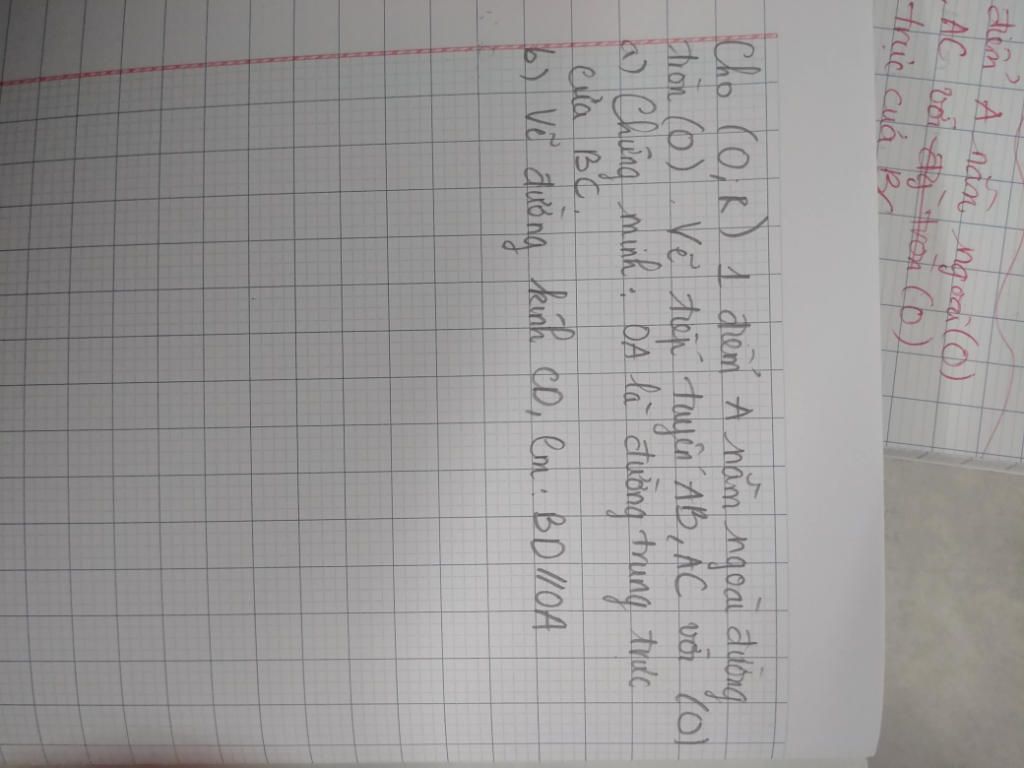 Cho (O; R) 1 điểm A nằm ngoài đường
tròn (O). Vẽ tiếp tuyến AB, AC với (O)
a) Chứng minh: OA là đường trung trực
của BC.
b) Vẽ đường kính CD, Cm: BD//OA
điểm A nằm ngoài (O)
AC với tròn (O)
trực của BC